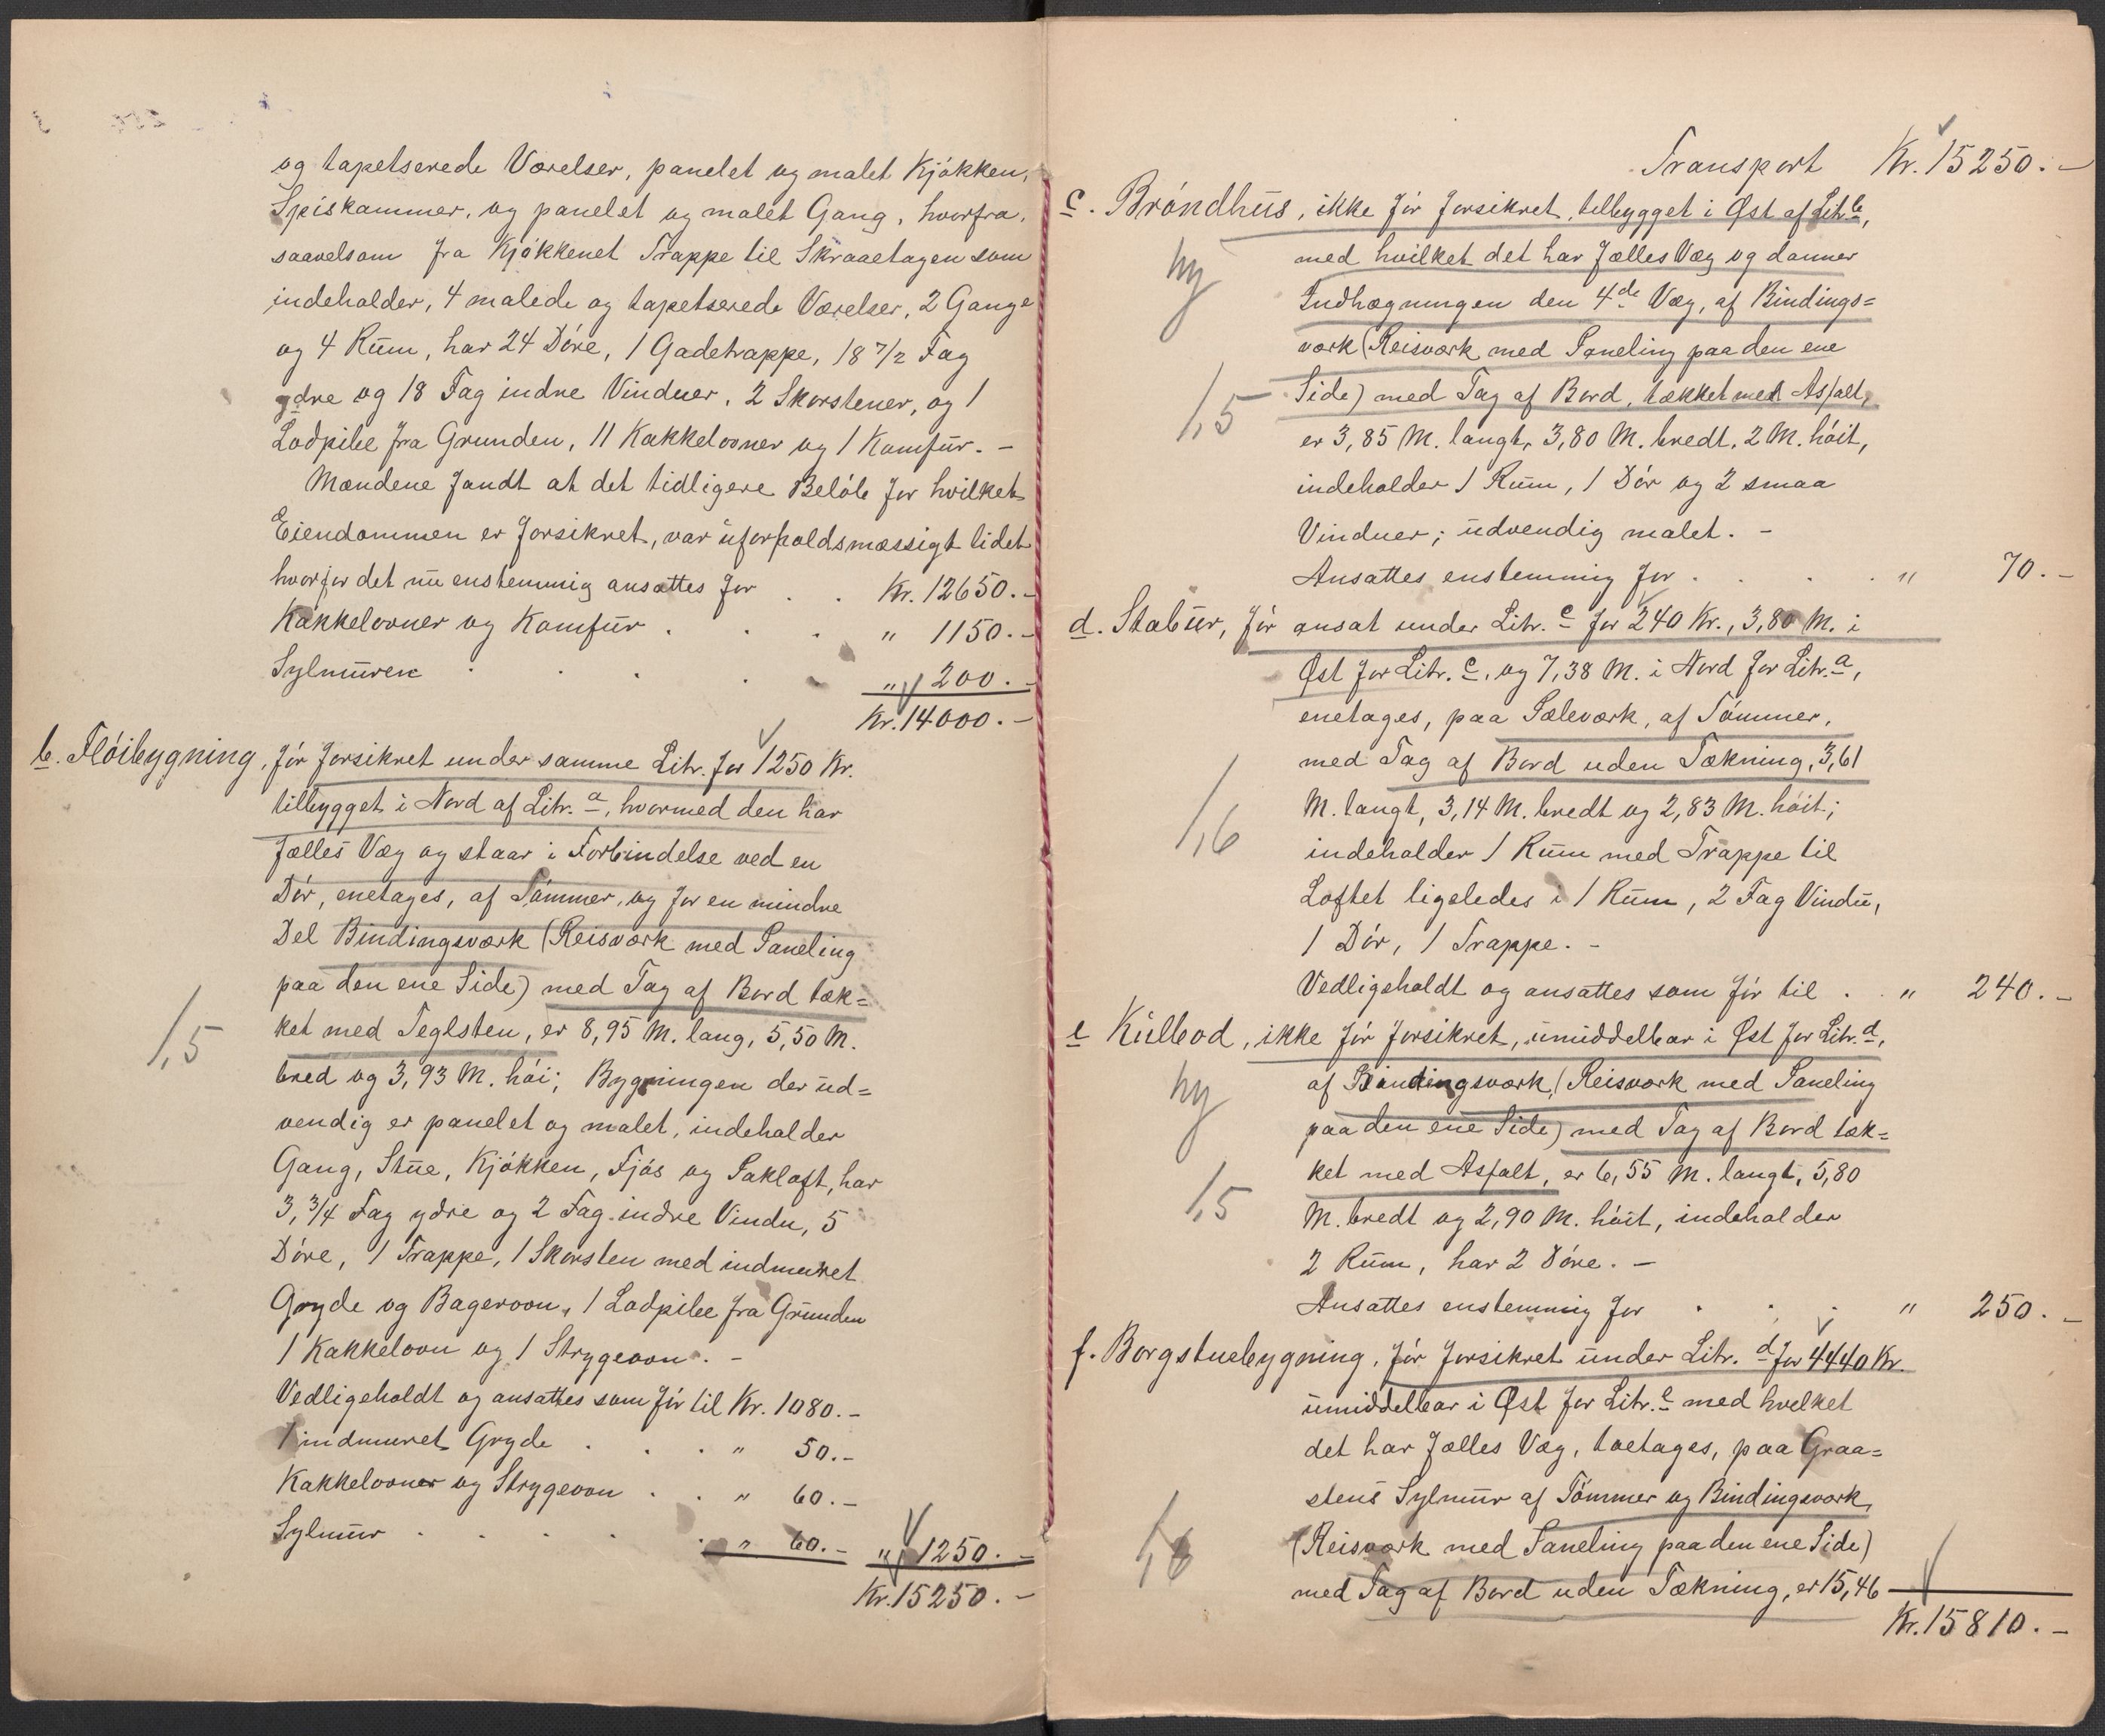 og tapetserede Værelser, panelet og malet Kjøkken,
Spiskammer, og panelet og malet Gang, hvorfra,
saavelsom fra Kjøkkenet Trappe til Skraaetagen som
indeholder, 4 malede og tapetserede Værelser, 2 Gange
og 4 Rum, har 24 Døre, 1 Gadetrappe, 18 7/2 Fag
ydre og 18 Fag indre Vinduer, 2 Skorstener, og 1
Lodpibe fra Grunden, 11 Kakkelovner og 1 Komfur. –
Mændene fandt at det tidligere Beløb for hvilket
Eiendommen er forsikret, var uforholdsmæssigt lidet
hvorfor det nu enstemmig ansattes for . . Kr. 12650. –
Kakkelovner og Komfur . . . " 1150. –
Sylmuren . . . . " 200. –
Kr. 14000. –
b. Fløibygning, før forsikret under samme Litr. for 1250 Kr.
tilbygget i Nord af Litr. a, hvormed den har
fælles Væg og staar i Forbindelse ved en
Dør, enetages, af Tømmer, og for en mindre
Del Bindingsværk (Reisværk med Paneling
paa den ene Side) med Tag af Bord tæk=
1,5
ket med Teglsten, er 8,95 M. lang, 5,50 M.
bred og 3,93 M. høi; Bygningen der ud=
vendig er panelet og malet, indeholder
Gang, Stue, Kjøkken, Fjøs og Pakloft, har
3, 3/4 Fag ydre og 2 Fag indre Vindu, 5
Døre, 1 Trappe, 1 Skorsten med indmuret
Gryde og Bagerovn, 1 Lodpibe fra Grunden
1 Kakkelovn og 1 Strygeovn. –
Vedligeholdt og ansattes som før til Kr. 1080. –
1 indmuret Gryde . . . " 50. –
Kakkelovner og Strygeovn . . " 60. –
Sylmur . . . . . " 60. – " 1250. –
Kr. 15250. –
Transport Kr. 15250. –
c. Brøndhus, ikke før forsikret, tilbygget i Øst af Litr. b,
ny
med hvilket det har fælles Væg og danner
Indhægningen den 4de Væg, af Bindings=
værk (Reisværk med Paneling paa den ene
1,5
Side) med Tag af Bord, tækket med Asfalt,
er 3,85 M. langt, 3,80 M. bredt, 2 M. høit,
indeholder 1 Rum, 1 Dør og 2 smaa
Vinduer; udvendig malet. –
Ansattes enstemmig for . . . . " 70. –
d. Stabur, før ansat under Litr. c for 240 Kr., 3,80 M. i
Øst for Litr. c, og 7,38 M. i Nord for Litr. a,
enetages, paa Pæleværk, af Tømmer,
med Tag af Bord uden Tækning, 3,61
1,6
M. langt, 3,14 M. bredt og 2,83 M. høit;
indeholder 1 Rum med Trappe til
Loftet ligeledes i 1 Rum, 2 Fag Vindu,
1 Dør, 1 Trappe. –
Vedligeholdt og ansattes som før til . . " 240. –
e Kulbod, ikke før forsikret, umiddelbar i Øst for Litr. d,
ny
af Bindingsværk, (Reisværk med Paneling
paa den ene Side) med Tag af Bord tæk=
1,5
ket med Asfalt, er 6,55 M. langt, 5,80
M. bredt og 2,90 M. høit, indeholder
2 Rum, har 2 Døre. –
Ansattes enstemmig for . . . " 250. –
f. Borgstuebygning, før forsikret under Litr. d for 4440 Kr.
umiddelbar i Øst for Litr. e med hvilket
det har fælles Væg, toetages, paa Graa=
stens Sylmur af Tømmer og Bindingsværk
(Reisværk med Paneling paa den ene Side)
med Tag af Bord uden Tækning, er 15,46
Kr. 15810. –